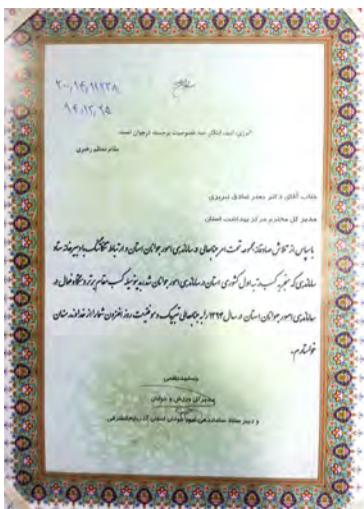 ۲۰۰/۱۴/۱۱۲۳۸
۹۴/۱۲/۲۵
انرژی، امید، ابتکار، سه خصوصیت برجسته نوجوان است.
مقام معظم رهبری
جناب آقای دکتر جعفر صادق تبریزی
مدیر کل محترم مرکز بهداشت استان
با سپاس از تلاش صادقانه مجموعه تحت امر جنابعالی و ساماندهی امور جوانان استان و ارتباط تنگاتنگ با دبیرخانه ستاد
ساماندهی که منجر به کسب رتبه اول کشوری استان در ساماندهی امور جوانان شد، بدینوسیله کسب مقام برتر دستگاه فعال در
ساماندهی امور جوانان استان در سال ۱۳۹۴ را به جنابعالی تبریک و موفقیت روز افزون شما را از خداوند منان
خواستارم.
مدیر کل ورزش و جوانان
و دبیر ستاد ساماندهی امور جوانان استان آذربایجان‌شرقی